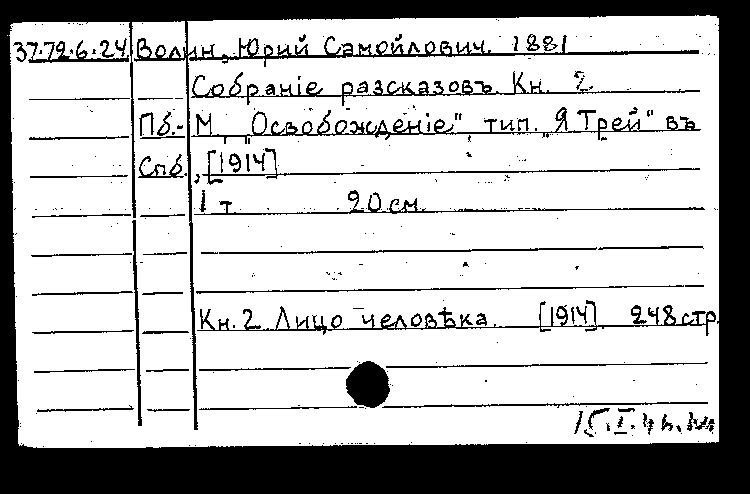 37.79.6.24 Волин, Юрий Самойлович. 1881
Собраніе разсказовъ. Кн. 2
Пб.-М., "Освобожденіе", тип. "Я Трей" въ
Спб., [1914]
1 т. 20 см.
Кн. 2 Лицо человѣка. [1914] 248 стр.
15.I.